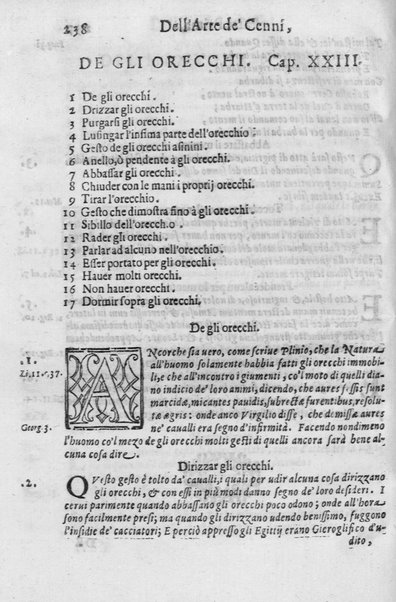 238 Dell'Arte de' Cenni,
DE GLI ORECCHI. Cap. XXIII.
1 De gli orecchi.
2 Drizzar gli orecchi.
3 Purgarsi gl'orecchi.
4 Lusingar l'infima parte dell'orecchio.
5 Gesto de gli orecchi asinini.
6 Anello, ò pendente à gli orecchi.
7 Abbassar gli orecchi.
8 Chiuder con le mani i proprij orecchi.
9 Tirar l'orecchio.
10 Gesto che dimostra fino à gli orecchi.
11 Sibillo dell'orecchio.
12 Rader gli orecchi.
13 Parlar ad alcuno nell'orecchio.
14 Esser portato per gli orecchi.
15 Hauer molti orecchi.
16 Non hauer orecchi.
17 Dormir sopra gli orecchi.
De gli orecchi.
1.
Li. 11. c. 37.
Georg. 3.
ANcorche sia vero, come scriue Plinio, che la Natura
all'huomo solamente habbia fatti gli orecchi immobi-
li, e che all'incontro i giumenti, co'l moto di quelli dia-
no indicio de' loro animi, dicendo, che aures fessis sunt
marcidæ, micantes pauidis, subrectæ furentibus, resolu-
tæ ægris: onde anco Virgilio disse, che di demissæ aures
ne' caualli era segno d'infirmità. Facendo nondimeno
l'huomo co'l mezo de gli orecchi molti gesti di quelli ancora sarà bene al-
cuna cosa dire.
Dirizzar gli orecchi.
2. QVesto gesto è tolto da' caualli, i quali per udir alcuna cosa dirizzano
gli orecchi, & con essi in più modi danno segno de' loro desideri. I
cerui parimente quando abbassano gli orecchi poco odono; onde all'hora
sono facilmente presi; ma quando gli dirizzano udendo benissimo, fuggono
l'insidie de' cacciatori; E perciò appresso gli Egittij erano Gieroglifico d'u-
dito,